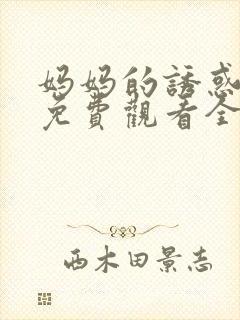 妈妈的誘惑
免費觀看全
西木田景志